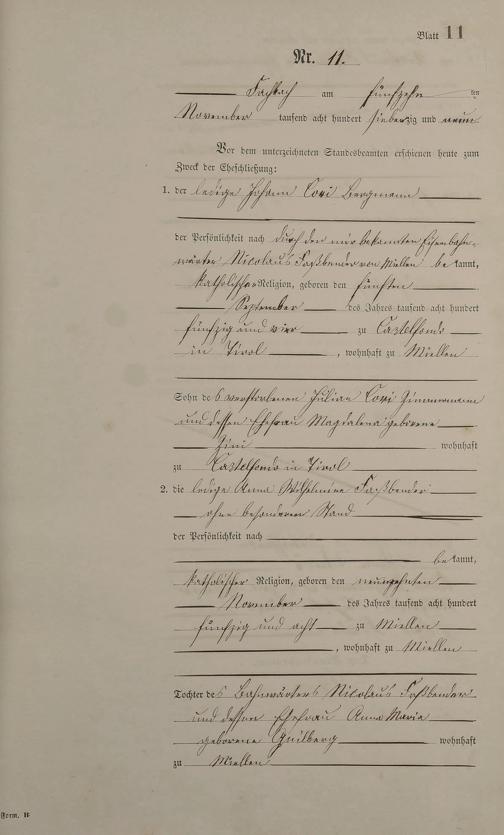 Blatt 11
Nr. 11.
Fachbach am fünfzehn ten
November tausend acht hundert siebenzig und neun
Vor dem unterzeichneten Standesbeamten erschienen heute zum
Zweck der Eheschließung:
1. der ledige Johann Cori Bergmann
der Persönlichkeit nach durch den mir bekannten Eisenbahn-
wärter Nicolaus Faßbender von Miellen be kannt,
katholischer Religion, geboren den fünften
September des Jahres tausend acht hundert
fünfzig und vier zu Castelfondo
in Tirol, wohnhaft zu Miellen
Sohn des verstorbenen Julian Cori Zimmermann
und dessen Ehefrau Magdalena geborene
wohnhaft
zu Castelfondo in Tirol
2. die ledige Anna Wilhelmine Faßbender
ohne besonderen Stand
der Persönlichkeit nach
be kannt,
katholischer Religion, geboren den neunzehnten
November des Jahres tausend acht hundert
fünfzig und acht zu Miellen
, wohnhaft zu Miellen
Tochter des Bahnwärters Nicolaus Faßbender
und dessen Ehefrau Anna Maria
geborene wohnhaft
zu Miellen
Form. B